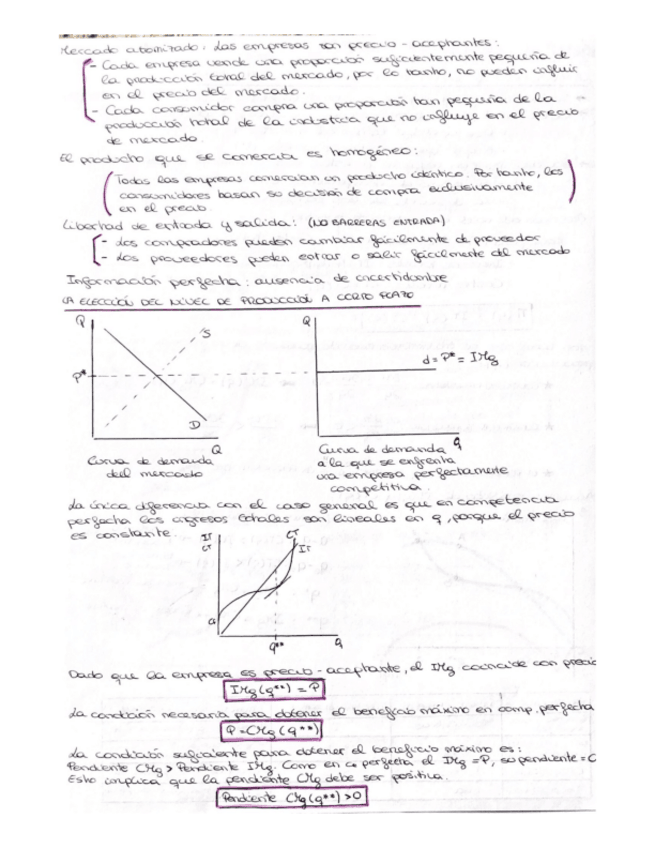 Mercado atomizado: Las empresas son precio-aceptantes:
- Cada empresa vende una proporción suficientemente pequeña de
la producción total del mercado, por lo tanto, no pueden influir
en el precio del mercado.
- Cada consumidor compra una proporción tan pequeña de la
producción total de la industria que no influye en el precio
de mercado.
El producto que se comercia es homogéneo:
Todas las empresas comercian un producto idéntico. Por tanto, los
consumidores basan su decisión de compra exclusivamente
en el precio.
Libertad de entrada y salida: (NO BARRERAS ENTRADA)
- Los compradores pueden cambiar fácilmente de proveedor
- Los proveedores pueden entrar o salir fácilmente del mercado
Información perfecta: ausencia de incertidumbre
LA ELECCIÓN DEL NIVEL DE PRODUCCIÓN A CORTO PLAZO
P
S
P*
D
Q
Q
d = P* = IMg
q
Curva de demanda
del mercado
Curva de demanda
a la que se enfrenta
una empresa perfectamente
competitiva.
La única diferencia con el caso general es que en competencia
perfecta los ingresos totales son lineales en q, porque el precio
es constante.
IT
CT
CT
IT
a
q**
q
Dado que la empresa es precio-aceptante, el IMg coincide con precio
IMg(q**) = P
La condición necesaria para obtener el beneficio máximo en comp. perfecta
P=CMg(q**)
La condición suficiente para obtener el beneficio máximo es:
Pendiente CMg > Pendiente IMg. Como en c. perfecta el IMg =P, su pendiente = 0
Esto implica que la pendiente CMg debe ser positiva.
Pendiente CMg(q**)>0